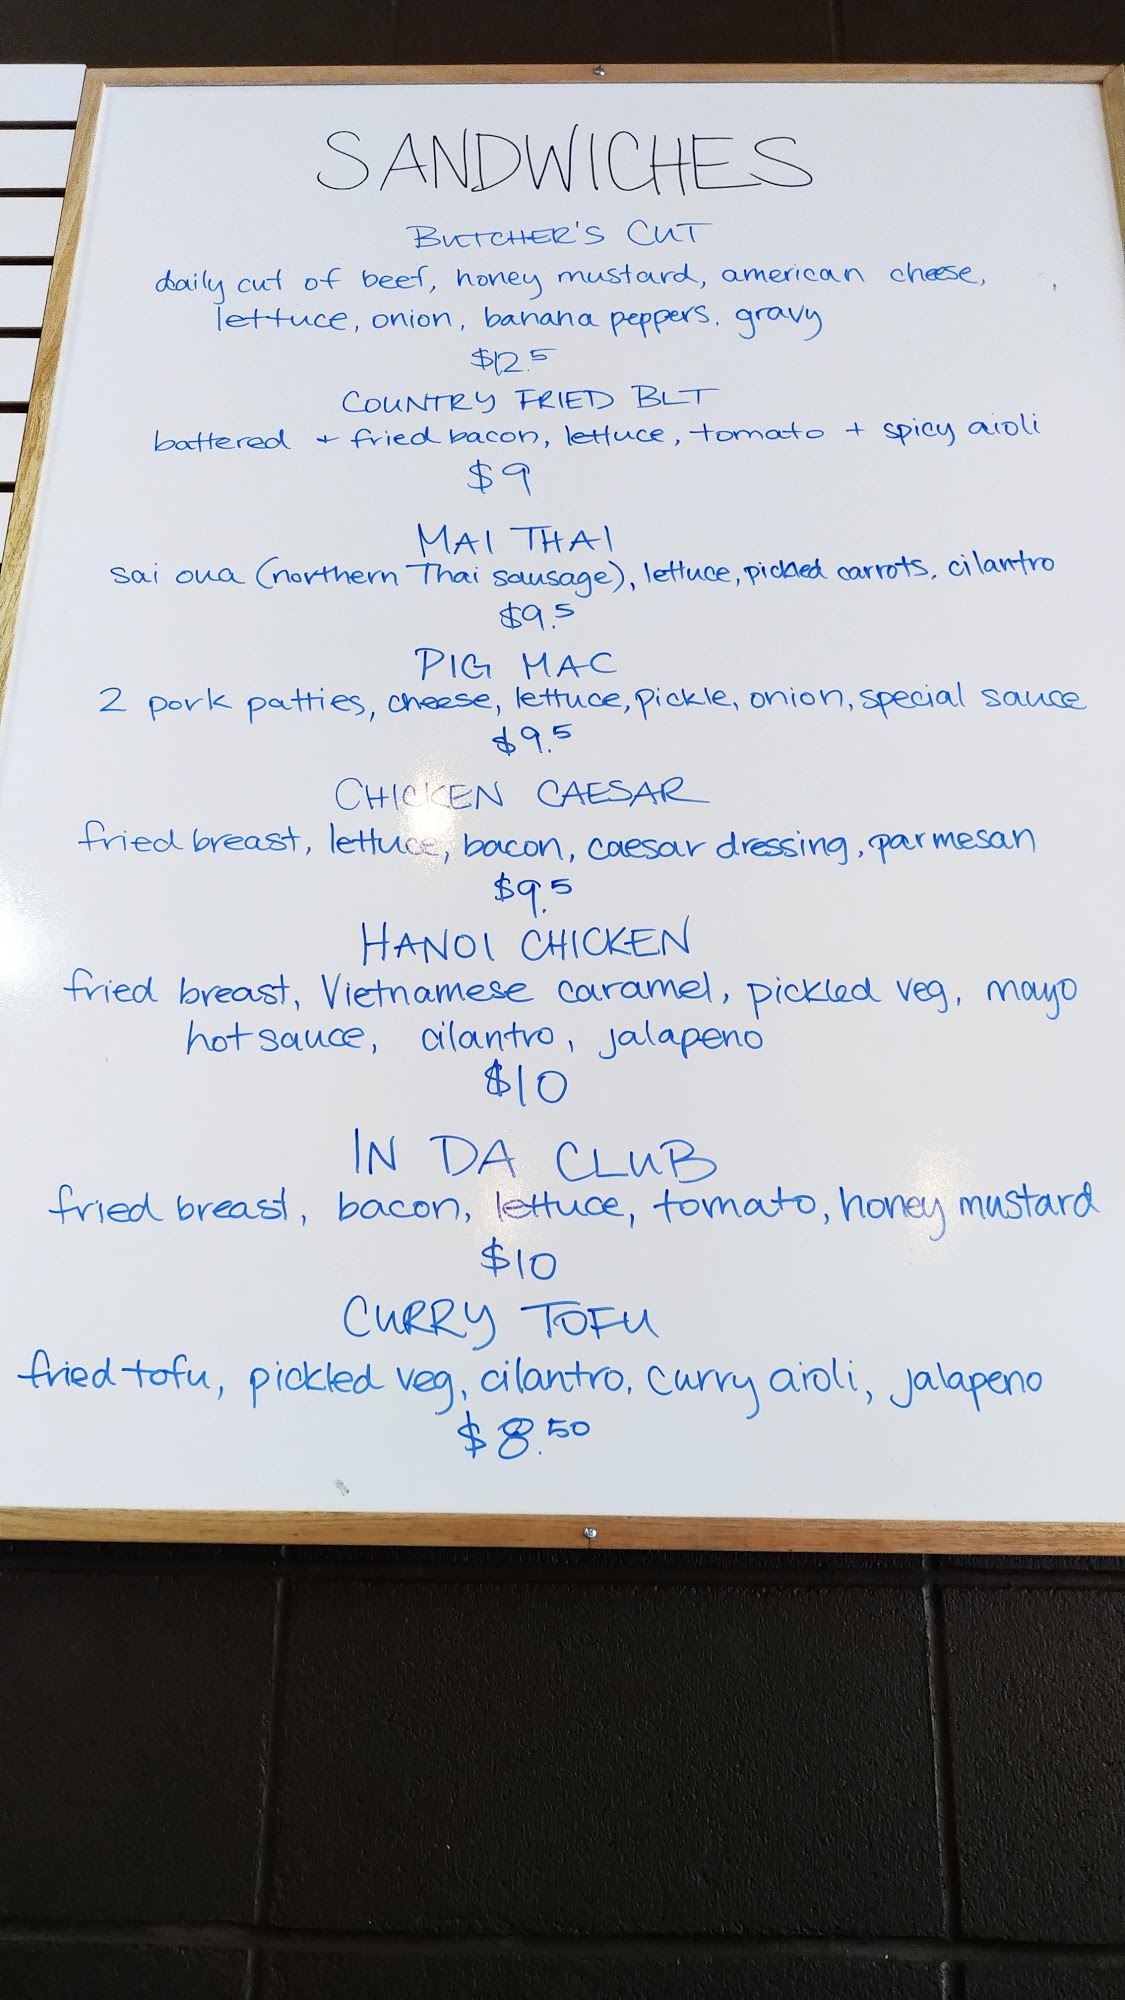 SANDWICHES
BUTCHER'S CUT
daily cut of beef, honey mustard, american cheese,
lettuce, onion, banana peppers, gravy
$12.5
COUNTRY FRIED BLT
battered + fried bacon, lettuce, tomato + spicy aioli
$9
MAI THAI
sai oua (northern Thai sausage), lettuce, pickled carrots, cilantro
$9.5
PIG MAC
2 pork patties, cheese, lettuce, pickle, onion, special sauce
$9.5
CHICKEN CAESAR
fried breast, lettuce, bacon, caesar dressing, parmesan
$9.5
HANOI CHICKEN
fried breast, Vietnamese caramel, pickled veg, mayo
hot sauce, cilantro, jalapeno
$10
IN DA CLUB
fried breast, bacon, lettuce, tomato, honey mustard
$10
CURRY TOFU
fried tofu, pickled veg, cilantro, curry aioli, jalapeno
$8.50